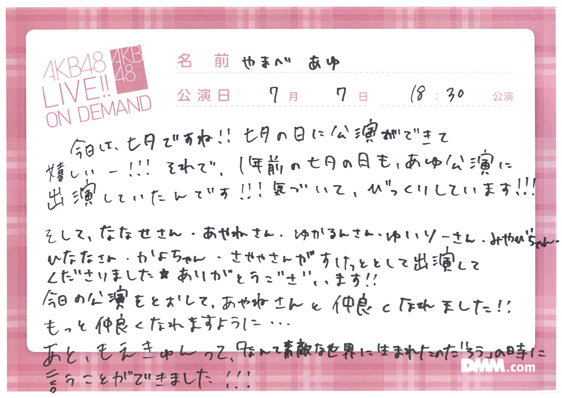 AKB48
LIVE!!
ON DEMAND
AKB
48
名前 やまべ あゆ
公演日 7月 7日 18:30 公演
今日は、七夕ですね!! 七夕の日に公演ができて
嬉しいー!!! それで、1年前の七夕の日も、あゆ公演に
出演していたんです!!! 気づいて、びっくりしています!!!
そして、ななせさん・あやねさん・ゆかるんさん・ゆいりーさん・みやびちゃん・
ひななさん・かよちゃん・さややさんがすけっととして出演して
くださりました★ありがとうございます!!
今日の公演をとおして、あやねさんと仲良くなれました!!
もっと仲良くなれますように…
あと、もえきゅんって、「なんて素敵な世界に生まれたのだろう」の時に
言うことができました!!!
DMM.com